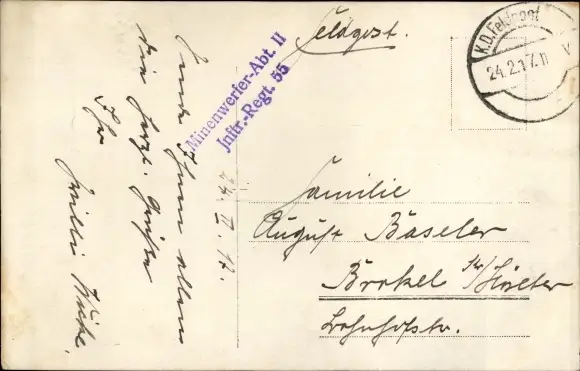 Feldpost.
K.D. Feldpost
24.2.17. 11
V
Minenwerfer-Abt. II
Jnftr.-Regt. 55
24. II. 17.
Sende Ihnen allen
die herzl. Grüße
Ihr
Willi
Familie
August Baseler
Brakel Kr/Höxter
Bahnhofstr.